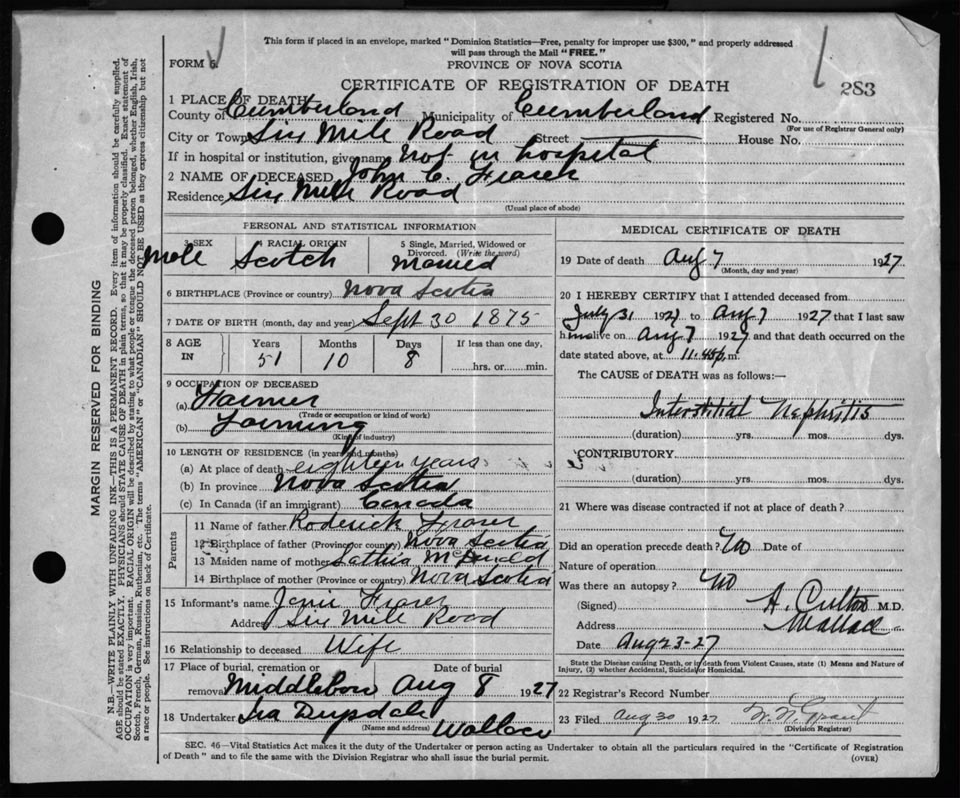 This form if placed in an envelope, marked "Dominion Statistics—Free, penalty for improper use $300," and properly addressed
will pass through the Mail "FREE."
FORM 6.
PROVINCE OF NOVA SCOTIA
CERTIFICATE OF REGISTRATION OF DEATH
283
1 PLACE OF DEATH
County of Cumberland Municipality of Cumberland Registered No.
(For use of Registrar General only)
City or Town Six Mile Road Street House No.
If in hospital or institution, give name Not in hospital
2 NAME OF DECEASED John C. Fraser
Residence Six Mile Road
(Usual place of abode)
PERSONAL AND STATISTICAL INFORMATION
3 SEX 4 RACIAL ORIGIN 5 Single, Married, Widowed or
Divorced. (Write the word)
Male Scotch Married
6 BIRTHPLACE (Province or country) Nova Scotia
7 DATE OF BIRTH (month, day and year) Sept 30 1875
8 AGE IN Years Months Days If less than one day,
51 10 8 hrs. or min.
9 OCCUPATION OF DECEASED
(a) Farmer
(Trade or occupation or kind of work)
(b) Farming
(Kind of industry)
10 LENGTH OF RESIDENCE (in years and months)
(a) At place of death eighteen years
(b) In province Nova Scotia
(c) In Canada (if an immigrant) Canada
Parents
11 Name of father Roderick Fraser
12 Birthplace of father (Province or country) Nova Scotia
13 Maiden name of mother
14 Birthplace of mother (Province or country) Nova Scotia
15 Informant's name Fraser
Address Six Mile Road
16 Relationship to deceased Wife
17 Place of burial, cremation or Date of burial
removal Middleboro Aug 8 1927
18 Undertaker Ira
(Name and address) Wallace
MEDICAL CERTIFICATE OF DEATH
19 Date of death Aug 7 1927
(Month, day and year)
20 I HEREBY CERTIFY that I attended deceased from
July 31 1927 to Aug 7 1927 that I last saw
him alive on Aug 7 1927 and that death occurred on the
date stated above, at 11.45 p.m.
The CAUSE of DEATH was as follows:—
Interstitial Nephritis
(duration) yrs. mos. dys.
CONTRIBUTORY
(duration) yrs. mos. dys.
21 Where was disease contracted if not at place of death?
Did an operation precede death? No Date of
Nature of operation
Was there an autopsy? No
(Signed) M.D.
Address Wallace
Date Aug 23-27
State the Disease causing Death, or in death from Violent Causes, state (1) Means and Nature of
Injury, (2) whether Accidental, Suicidal or Homicidal.
22 Registrar's Record Number
23 Filed Aug 30 1927 Grant
(Division Registrar)
SEC. 46—Vital Statistics Act makes it the duty of the Undertaker or person acting as Undertaker to obtain all the particulars required in the "Certificate of Registration
of Death" and to file the same with the Division Registrar who shall issue the burial permit.
(OVER)
MARGIN RESERVED FOR BINDING
N.B.—WRITE PLAINLY WITH UNFADING INK—THIS IS A PERMANENT RECORD. Every item of information should be carefully supplied.
AGE should be stated EXACTLY. PHYSICIANS should STATE CAUSE OF DEATH in plain terms, so that it may be properly classified. Exact statement of
OCCUPATION is very important. RACIAL ORIGIN will be described by stating to what people or tongue the deceased person belonged, whether English, Irish,
Scotch, French, German, Russian, Ruthenian, etc. The terms "AMERICAN" or "CANADIAN" SHOULD NOT BE USED as they express citizenship but not
a race or people. See instructions on back of Certificate.